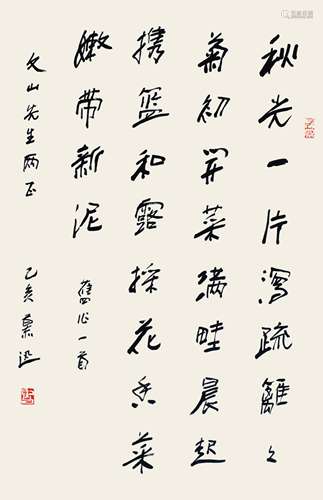 秋光一片瀉疏籬々
菊初開菜滿畦晨起
攜籃和露採花香菜
嫩帶新泥 舊作一首
文山先生兩正 乙亥